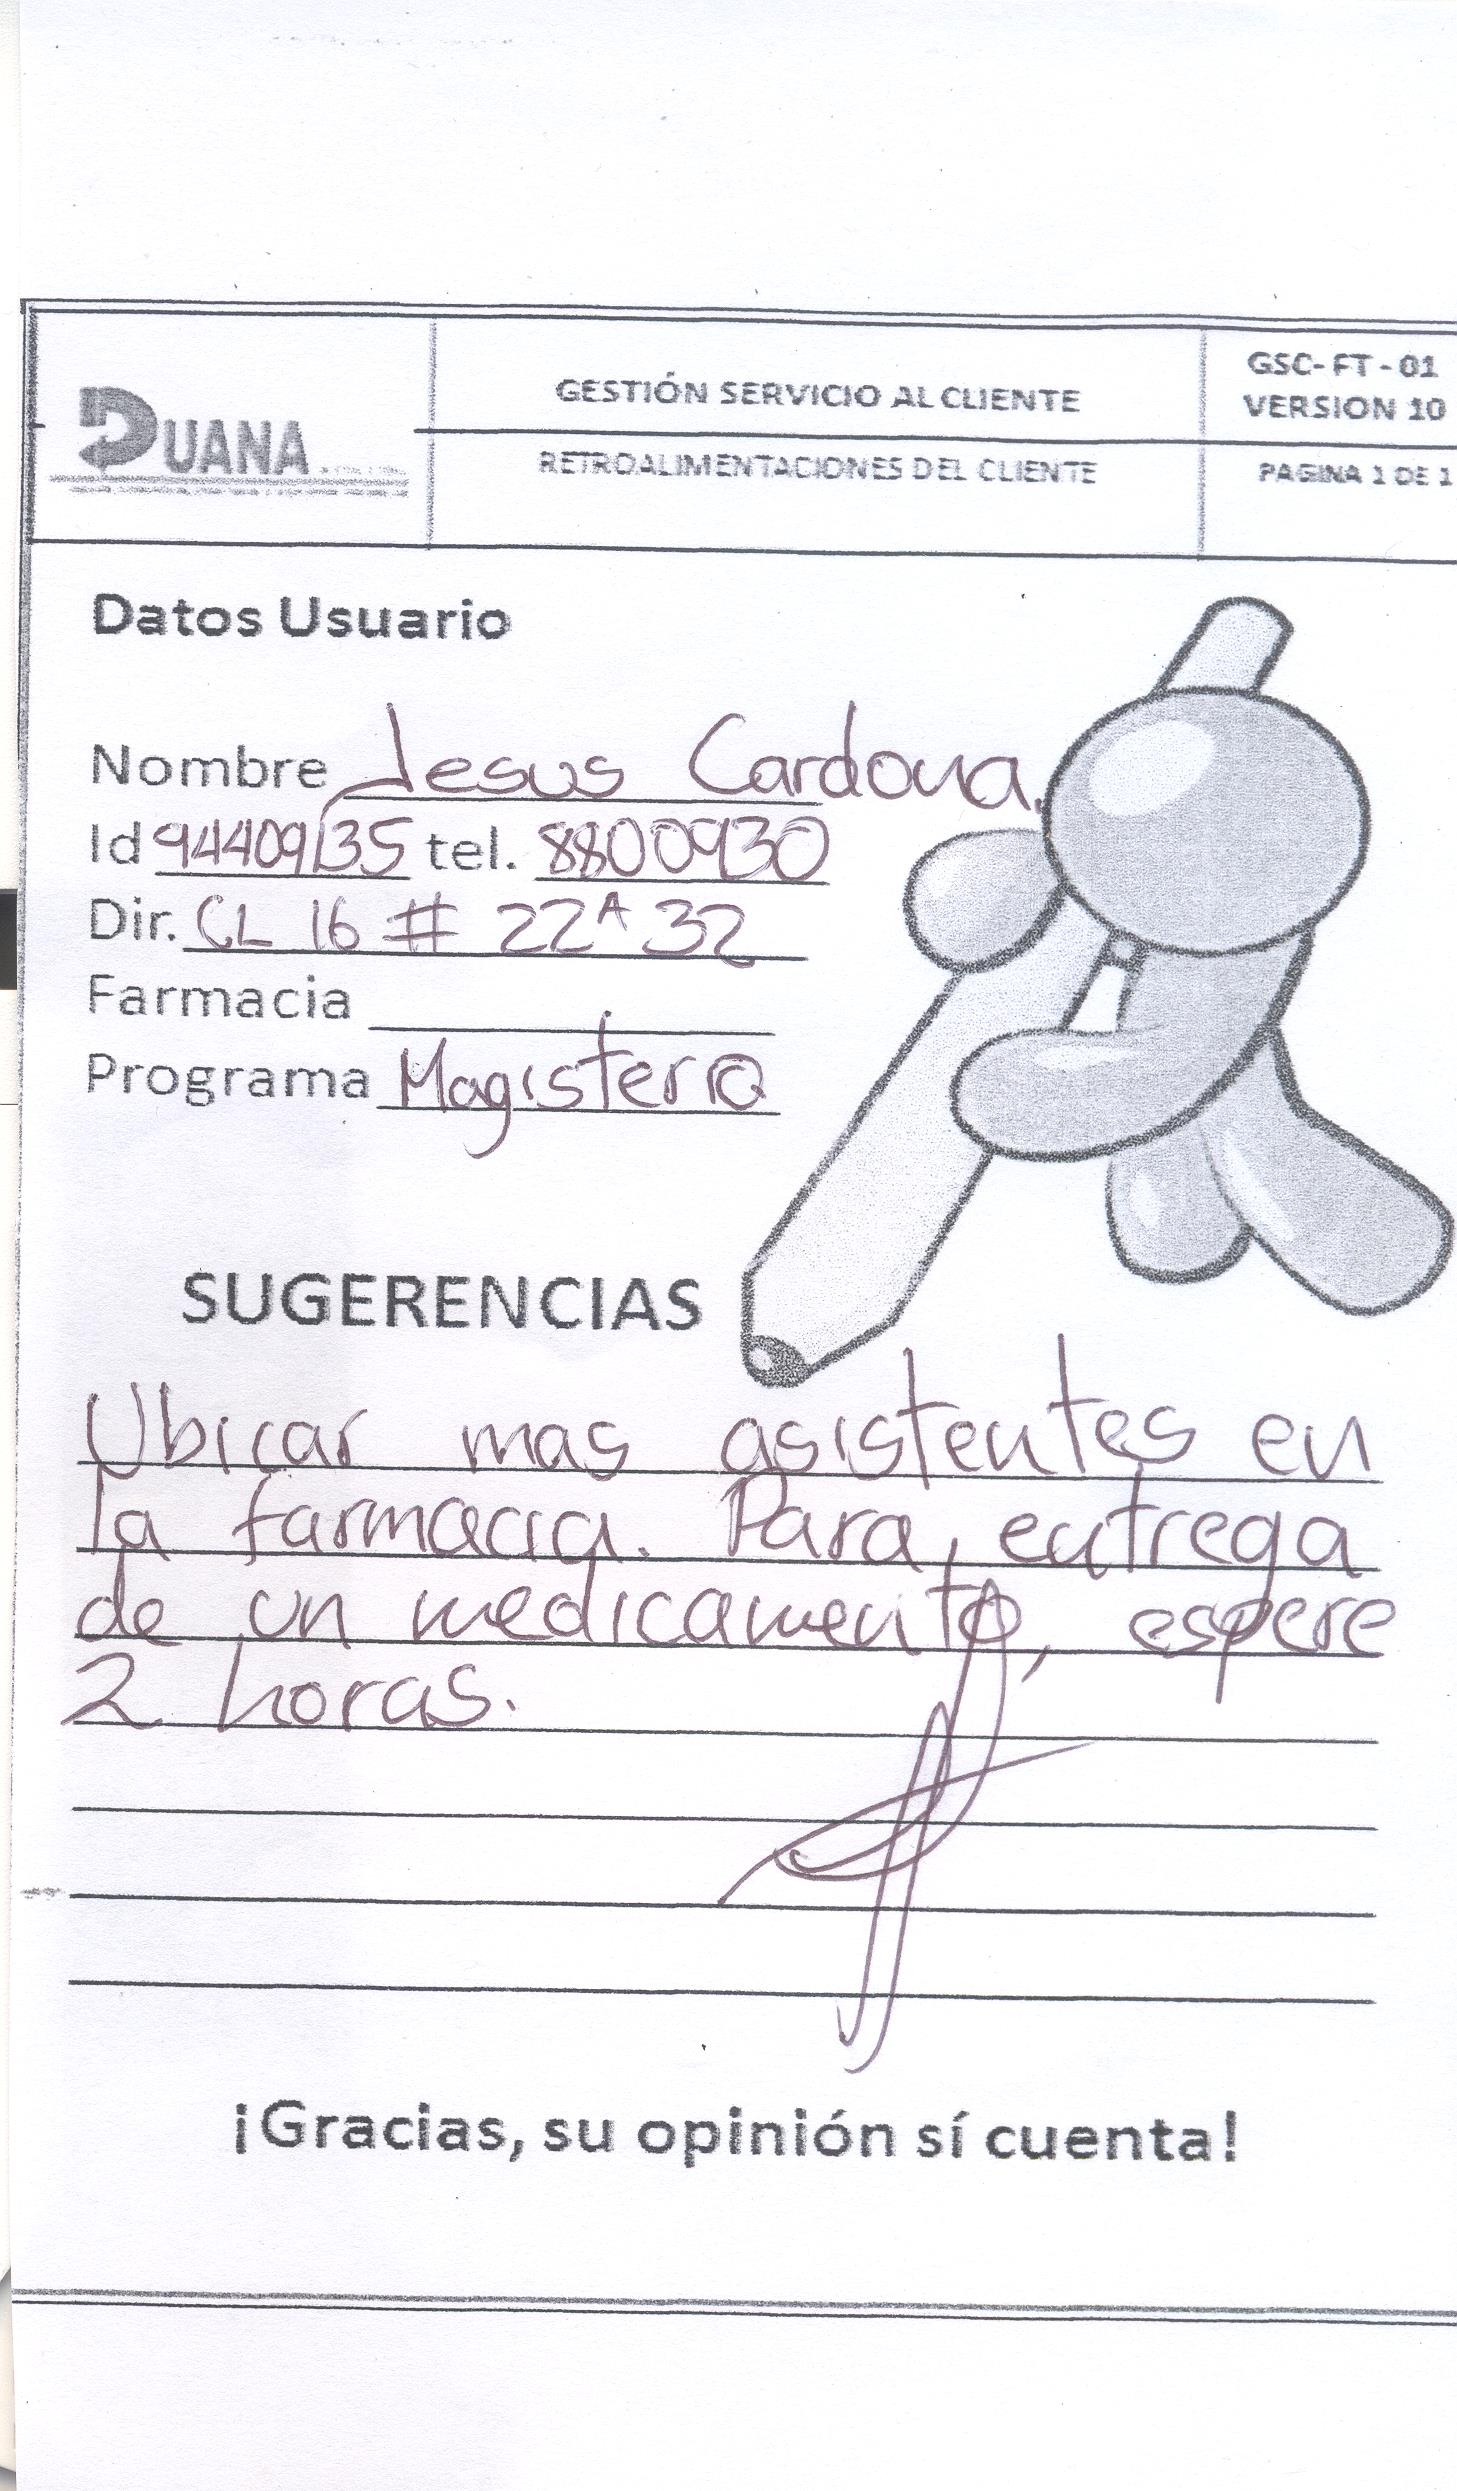 DUANA
GESTIÓN SERVICIO AL CLIENTE
RETROALIMENTACIONES DEL CLIENTE
GSC- FT - 01
VERSION 10
PAGINA 1 DE 1
Datos Usuario
Nombre Jesus Cardona.
Id 94409135 tel. 8800930
Dir. CL 16 # 22A 32
Farmacia
Programa Magisterio
SUGERENCIAS
Ubicar mas asistentes en
la farmacia. Para entrega
de un medicamento, espere
2 horas.
¡Gracias, su opinión sí cuenta!